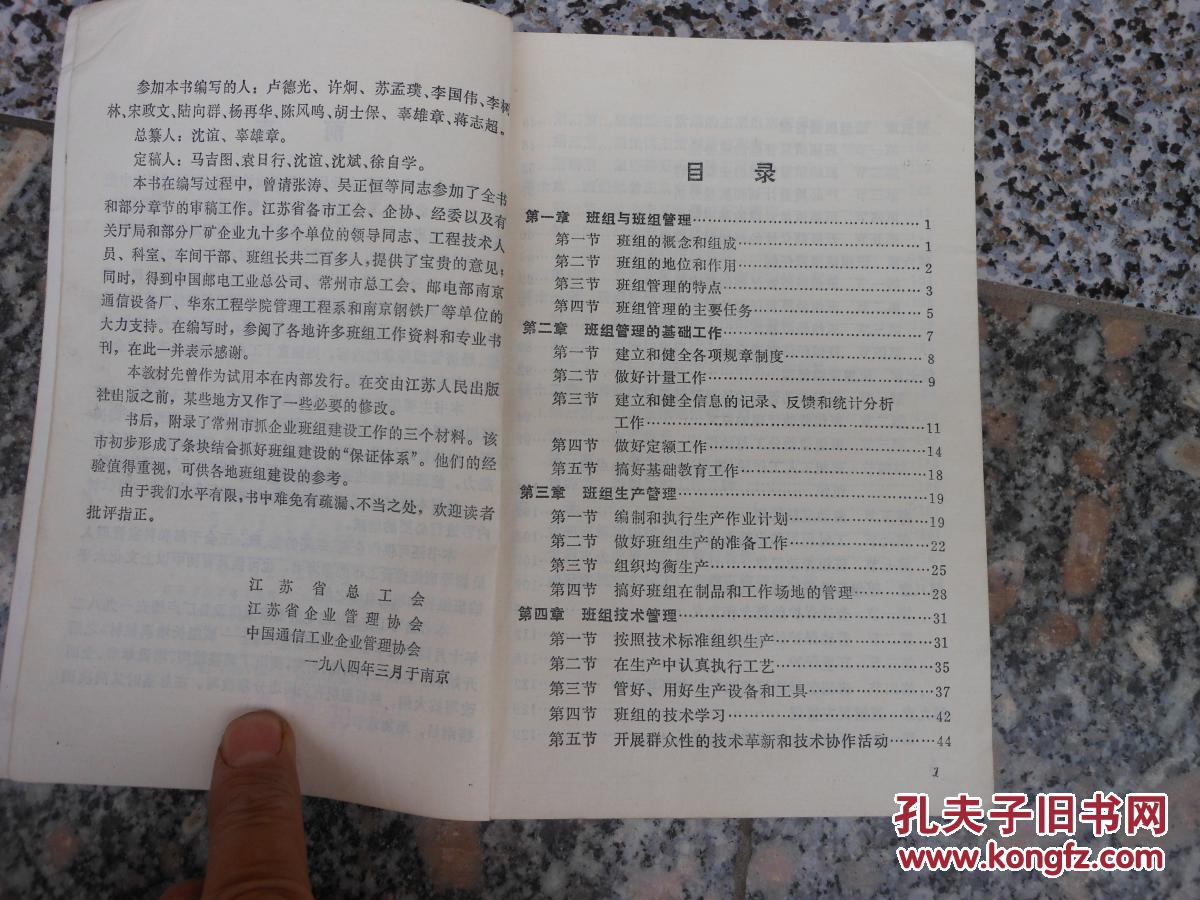 参加本书编写的人：卢德光、许炯、苏孟璞、李国伟、李树
林、宋政文、陆向群、杨再华、陈风鸣、胡士保、辜雄章、蒋志超。
总纂人：沈谊、辜雄章。
定稿人：马吉图、袁日行、沈谊、沈斌、徐自学。
本书在编写过程中，曾请张涛、吴正恒等同志参加了全书
和部分章节的审稿工作。江苏省备市工会、企协、经委以及有
关厅局和部分厂矿企业九十多个单位的领导同志、工程技术人
员、科室、车间干部、班组长共二百多人，提供了宝贵的意见；
同时，得到中国邮电工业总公司、常州市总工会、邮电部南京
通信设备厂、华东工程学院管理工程系和南京钢铁厂等单位的
大力支持。在编写时，参阅了各地许多班组工作资料和专业书
刊，在此一并表示感谢。
本教材先曾作为试用本在内部发行。在交由江苏人民出版
社出版之前，某些地方又作了一些必要的修改。
书后，附录了常州市抓企业班组建设工作的三个材料。该
市初步形成了条块结合抓好班组建设的“保证体系”。他们的经
验值得重视，可供各地班组建设的参考。
由于我们水平有限，书中难免有疏漏、不当之处，欢迎读者
批评指正。
江苏省总工会
江苏省企业管理协会
中国通信工业企业管理协会
一九八四年三月于南京
目 录
第一章 班组与班组管理……………………1
第一节 班组的概念和组成……………………1
第二节 班组的地位和作用……………………2
第三节 班组管理的特点……………………3
第四节 班组管理的主要任务……………………5
第二章 班组管理的基础工作……………………7
第一节 建立和健全各项规章制度……………………8
第二节 做好计量工作……………………9
第三节 建立和健全信息的记录、反馈和统计分析
工作……………………11
第四节 做好定额工作……………………14
第五节 搞好基础教育工作……………………18
第三章 班组生产管理……………………19
第一节 编制和执行生产作业计划……………………19
第二节 做好班组生产的准备工作……………………22
第三节 组织均衡生产……………………25
第四节 搞好班组在制品和工作场地的管理……………………28
第四章 班组技术管理……………………31
第一节 按照技术标准组织生产……………………31
第二节 在生产中认真执行工艺……………………35
第三节 管好、用好生产设备和工具……………………37
第四节 班组的技术学习……………………42
第五节 开展群众性的技术革新和技术协作活动………44
1
孔夫子旧书网
www.kongfz.com